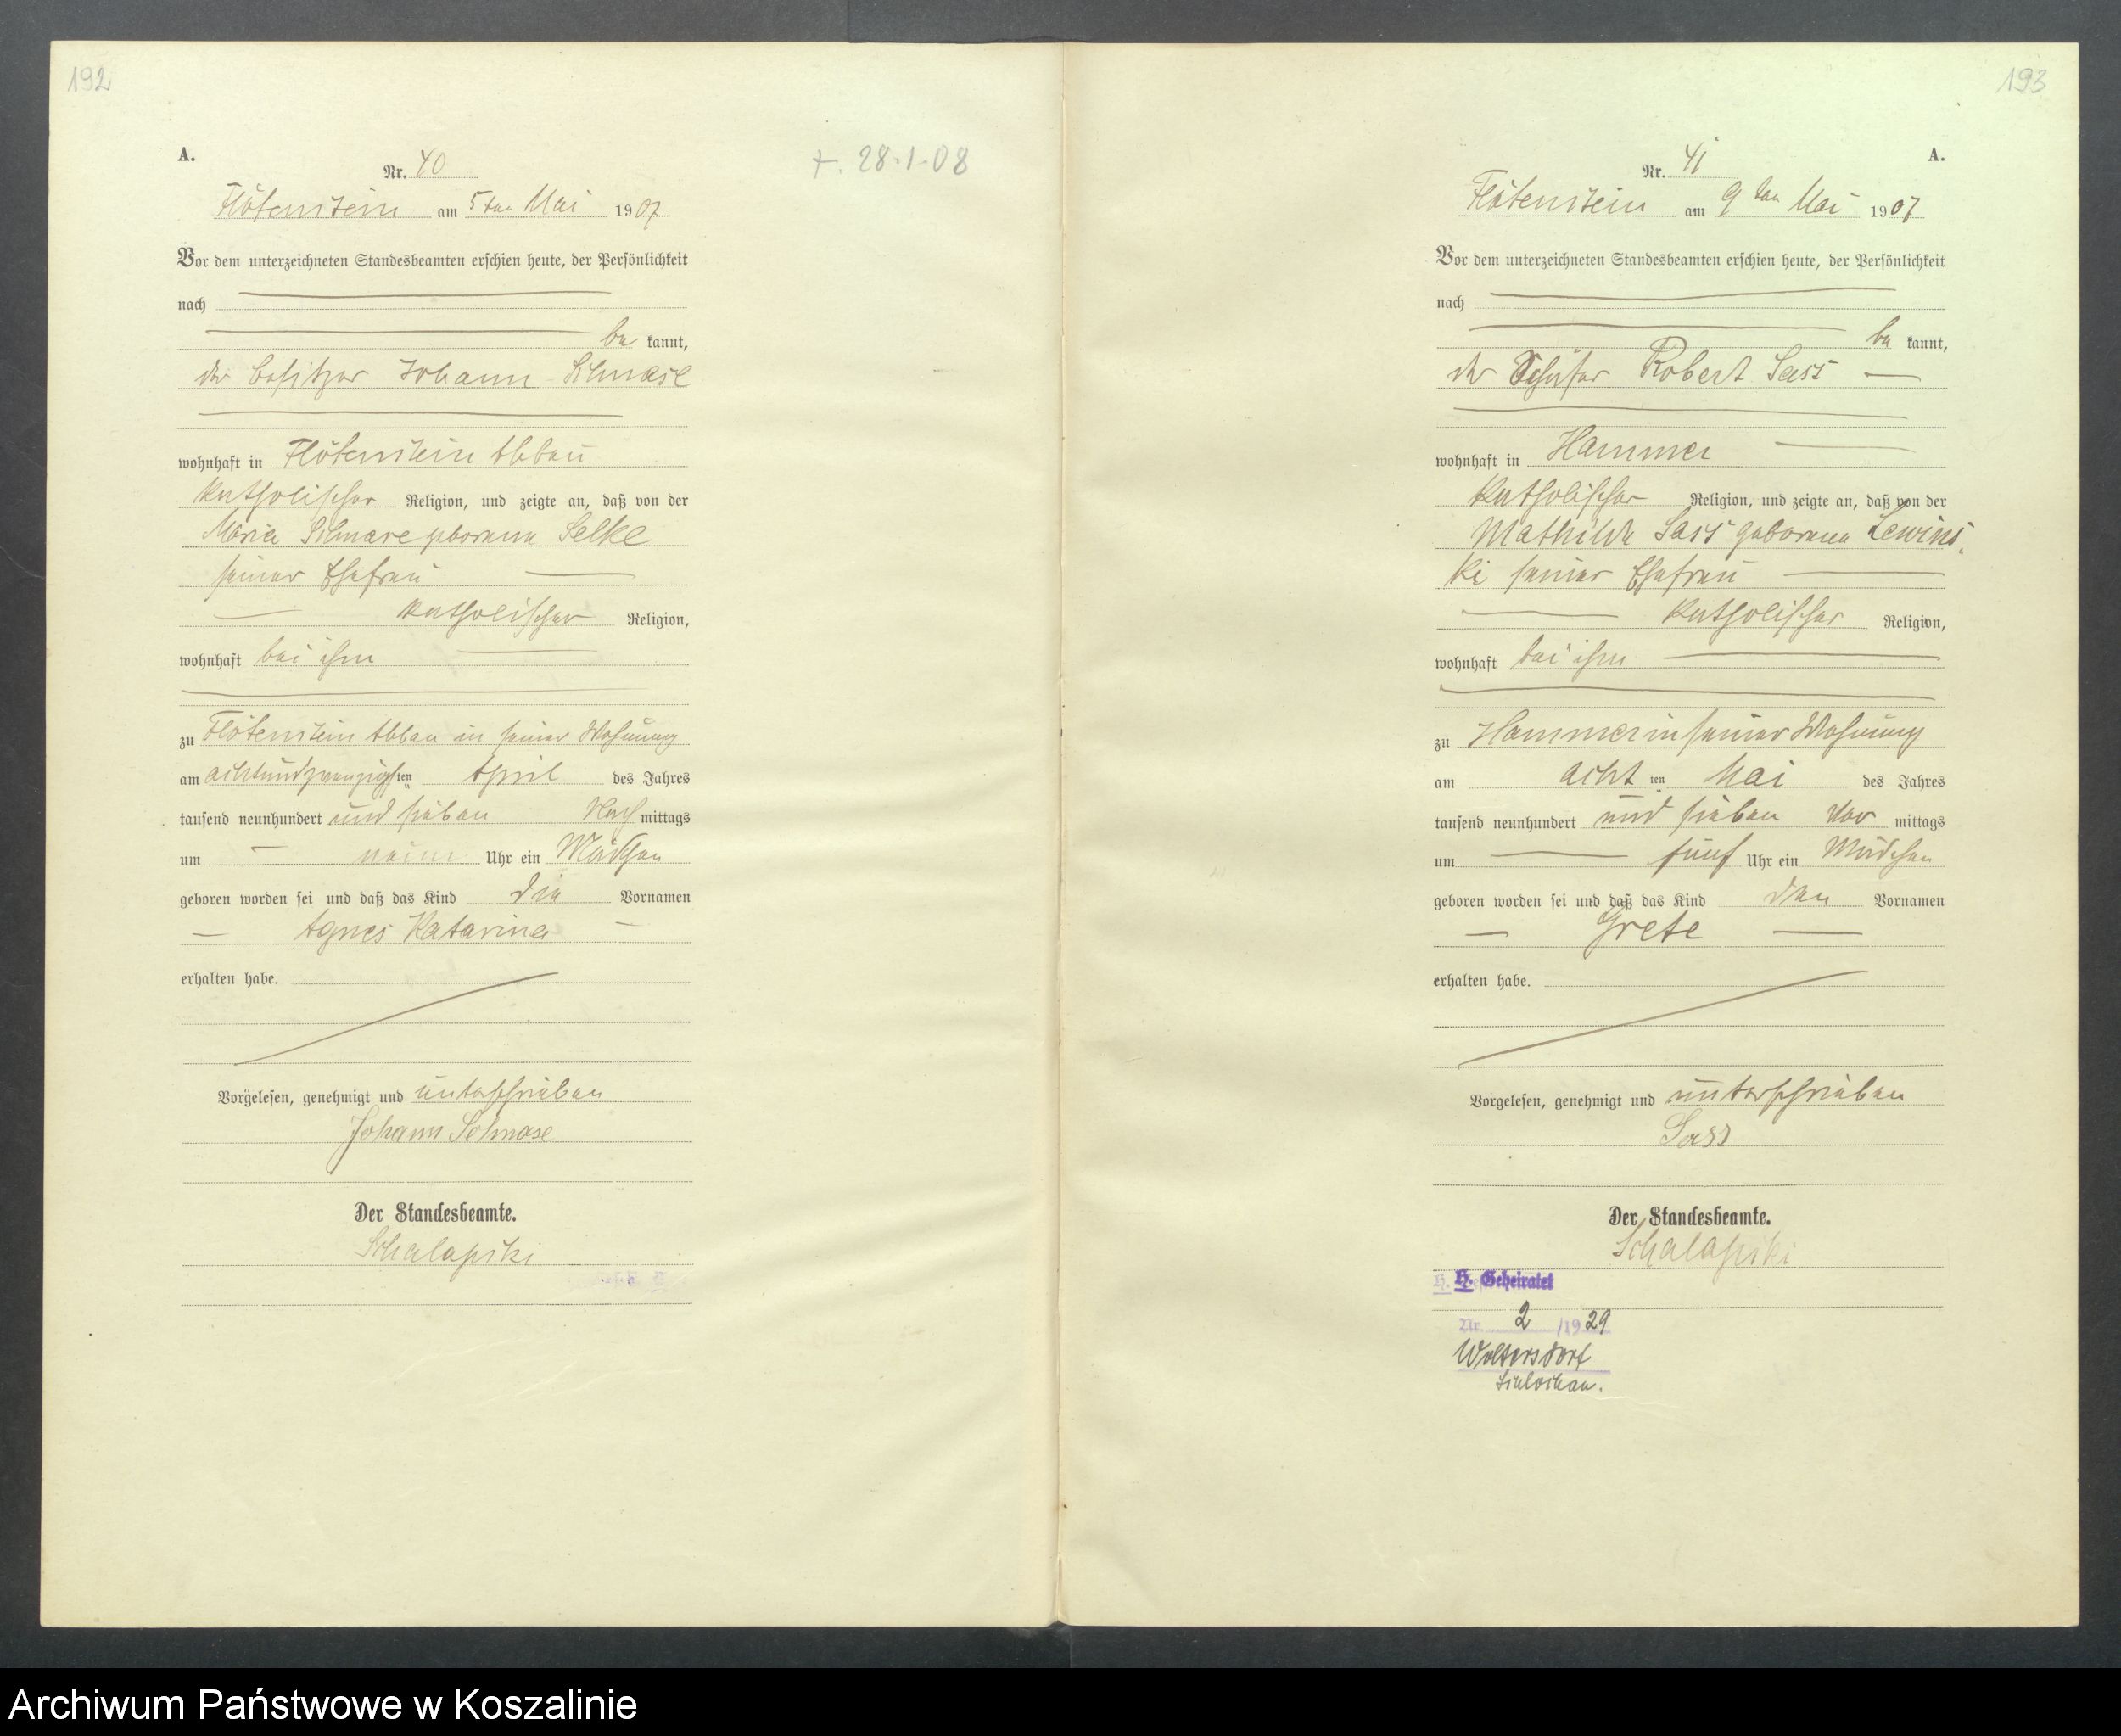 192
A.
Nr. 40
+. 28.1.08
Flötenstein am 5ten Mai 1907
Vor dem unterzeichneten Standesbeamten erschien heute, der Persönlichkeit
nach
be kannt,
der Besitzer Johann Schnase
wohnhaft in Flötenstein Abbau
katholischer Religion, und zeigte an, daß von der
Maria Schnase geborene Selke
seiner Ehefrau
katholischer Religion,
wohnhaft bei ihm
zu Flötenstein Abbau in seiner Wohnung
am achtundzwanzigsten April des Jahres
tausend neunhundert und sieben Nach mittags
um neun Uhr ein Mädchen
geboren worden sei und daß das Kind die Vornamen
Agnes Katarina
erhalten habe.
Vorgelesen, genehmigt und unterschrieben
Johann Schnase
Der Standesbeamte.
Schalapski
193
A.
Nr. 41
Flötenstein am 9ten Mai 1907
Vor dem unterzeichneten Standesbeamten erschien heute, der Persönlichkeit
nach
be kannt,
der Schäfer Robert Sass
wohnhaft in Hammer
katholischer Religion, und zeigte an, daß von der
Mathilde Sass geborene Lewins-
ki seiner Ehefrau
katholischer Religion,
wohnhaft bei ihm
zu Hammer in seiner Wohnung
am acht ten Mai des Jahres
tausend neunhundert und sieben Vor mittags
um fünf Uhr ein Mädchen
geboren worden sei und daß das Kind den Vornamen
Grete
erhalten habe.
Vorgelesen, genehmigt und unterschrieben
Sass
Der Standesbeamte.
Schalapski
H. Geheiratet
Nr. 2 /1929
Woltersdorf
Schlochau.
Archiwum Państwowe w Koszalinie